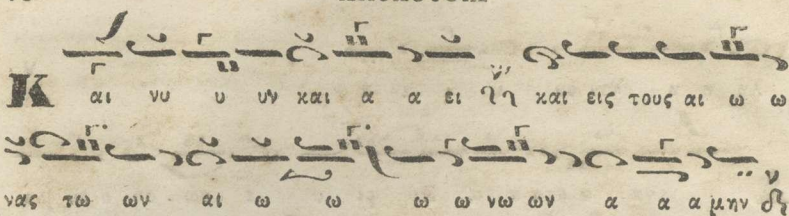 Κ αι νυ υ υν και α α ει και εις τους αι ω ω
νας τω ων αι ω ω ω ω νω ων α α α μην